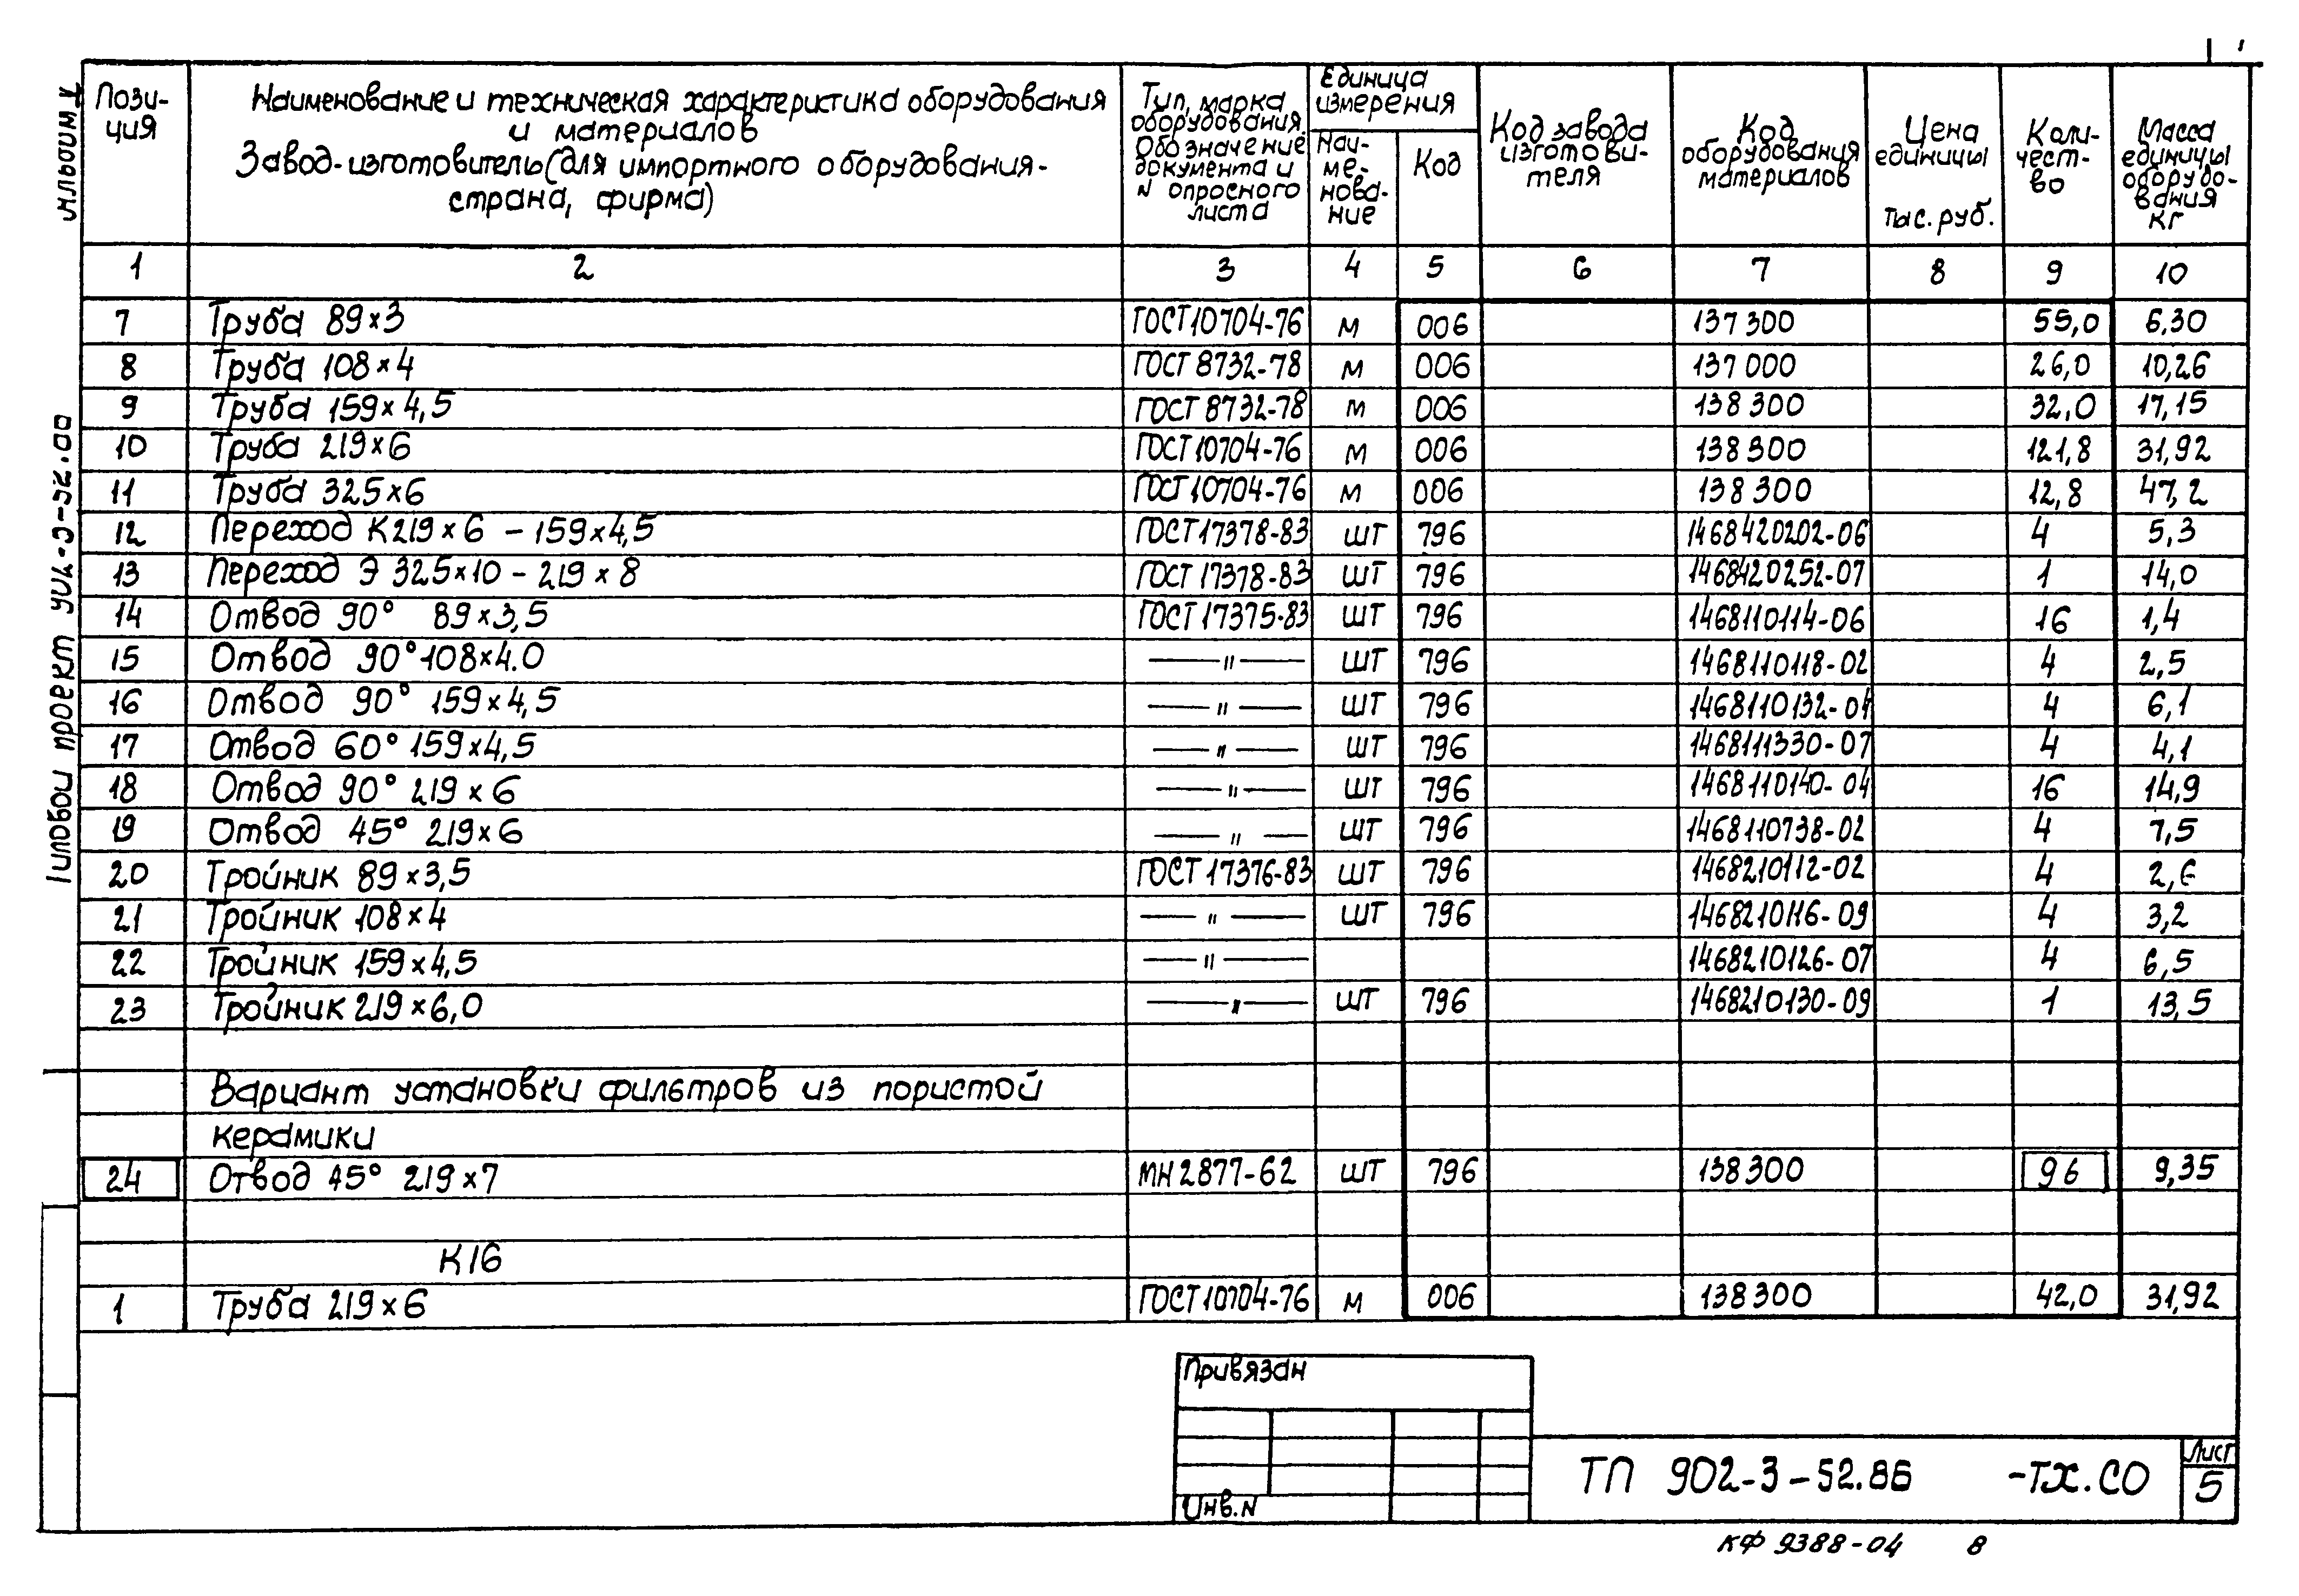 Пози-
ция
Наименование и техническая характеристика оборудования
и материалов
Завод-изготовитель (для импортного оборудования-
страна, фирма)
Тип, марка
оборудования.
Обозначение
документа и
N опросного
листа
Единица
измерения
Наи-
ме-
нова-
ние
Код
Код завода
изготови-
теля
Код
оборудования
материалов
Цена
единицы
тыс. руб.
Коли-
чест-
во
Масса
единицы
оборудо-
вания
кг
1 2 3 4 5 6 7 8 9 10
7 Труба 89×3 ГОСТ 10704-76 м 006 137300 55,0 6,30
8 Труба 108×4 ГОСТ 8732-78 м 006 137000 26,0 10,26
9 Труба 159×4,5 ГОСТ 8732-78 м 006 138300 32,0 17,15
10 Труба 219×6 ГОСТ 10704-76 м 006 138300 121,8 31,92
11 Труба 325×6 ГОСТ 10704-76 м 006 138300 12,8 47,2
12 Переход К219×6 – 159×4,5 ГОСТ 17378-83 шт 796 1468420202-06 4 5,3
13 Переход Э 325×10 – 219×8 ГОСТ 17378-83 шт 796 1468420252-07 1 14,0
14 Отвод 90° 89×3,5 ГОСТ 17375-83 шт 796 1468110114-06 16 1,4
15 Отвод 90° 108×4.0 —"— шт 796 1468110118-02 4 2,5
16 Отвод 90° 159×4,5 —"— шт 796 1468110132-04 4 6,1
17 Отвод 60° 159×4,5 —"— шт 796 1468111330-07 4 4,1
18 Отвод 90° 219×6 —"— шт 796 1468110140-04 16 14,9
19 Отвод 45° 219×6 —"— шт 796 1468110738-02 4 7,5
20 Тройник 89×3,5 ГОСТ 17376-83 шт 796 1468210112-02 4 2,6
21 Тройник 108×4 —"— шт 796 1468210116-09 4 3,2
22 Тройник 159×4,5 —"— 1468210126-07 4 6,5
23 Тройник 219×6,0 —"— шт 796 1468210130-09 1 13,5
Вариант установки фильтров из пористой
керамики
24 Отвод 45° 219×7 МН 2877-62 шт 796 138300 96 9,35
К16
1 Труба 219×6 ГОСТ 10704-76 м 006 138300 42,0 31,92
Привязан
Инв. N
ТП 902-3-52.86 -ТХ.СО
Лист
5
КФ 9388-04 8
проект